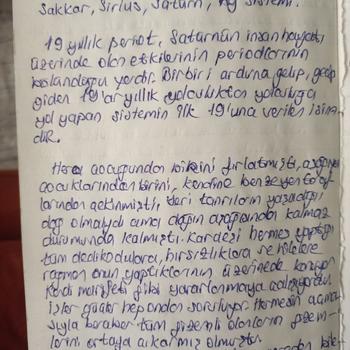 Sakkar, Sirius, Saturn, Ay sistemi.
19 yıllık periot, Satürnün insan hayatı
üzerinde olan etkilerinin periodlarının
kolandığu yerdir. Birbiri arduna gelip, geçip
giden 19'ar yıllık yolculuktan yolculuğa
yol yapan sistemin ilk 19'una verilen isim
dir.
Hera çocuğundan birini fırlatmıştı,
çocuklarından birini, kendine benzeyen
larından çekinmişti, teri tanrıların yaşadığı
dağ olmalıydı ama dağın aşağıında kalmaz
durumunda kalmıştı. Kardeşi hermes yaptığı
tüm dedikodulara, hırsızlıklara ve hilelere
rağmen onun yaptıklarının üzerinede konuyor
kedi marifeti gibi yararlanmaya çalışıyordu
işler güçler hep ondan soruluyor. Hermesin açma
sıyla beraber tüm gizemli olanların gizem-
lerini ortaya çıkarmış olmuştu.